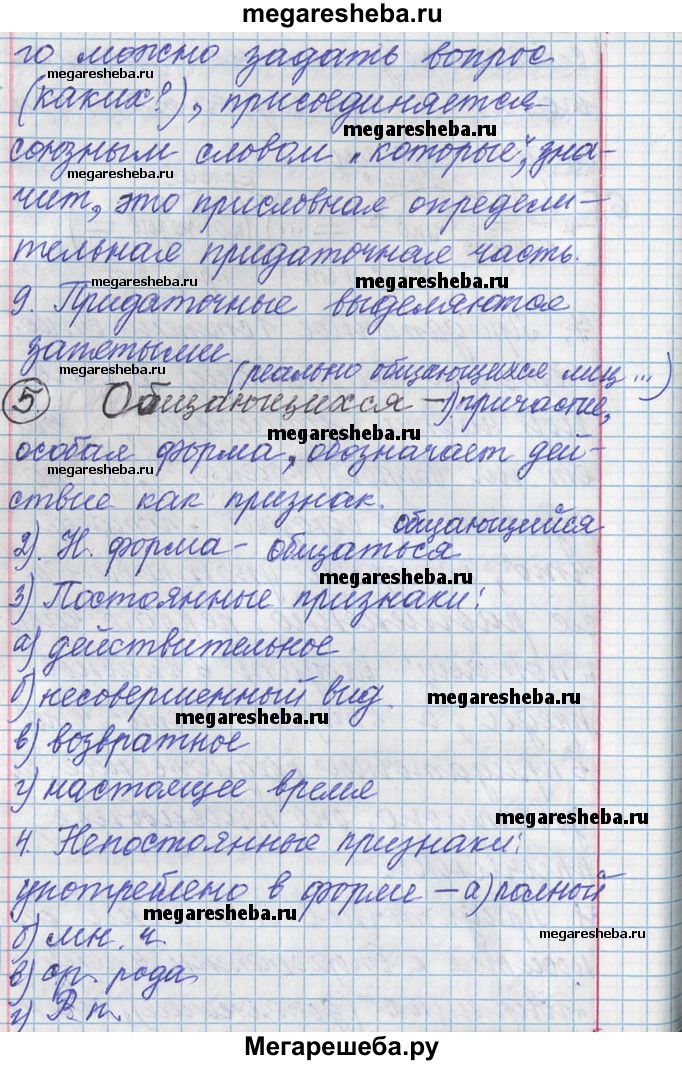 megaresheba.ru
го можно задать вопрос
megaresheba.ru
(каких?), присоединяется
megaresheba.ru
союзным словом „которые“, зна-
megaresheba.ru
чит, это присловная определи-
тельная придаточная часть.
megaresheba.ru megaresheba.ru
9. Придаточные выделяются
запятыми.
megaresheba.ru
(реально общающихся лиц ...)
5 Общающихся – 1) причастие,
megaresheba.ru
особая форма, обозначает дей-
ствие как признак.
общающийся
2). Н. форма – общаться
megaresheba.ru
3) Постоянные признаки:
а) действительное
б) несовершенный вид.
megaresheba.ru
megaresheba.ru
в) возвратное
г) настоящее время
megaresheba.ru
4. Непостоянные признаки:
употреблено в форме – а) полной
megaresheba.ru
б) мн. ч.
megaresheba.ru
в) ср. рода
г) Р. п.
Мегарешеба.ру